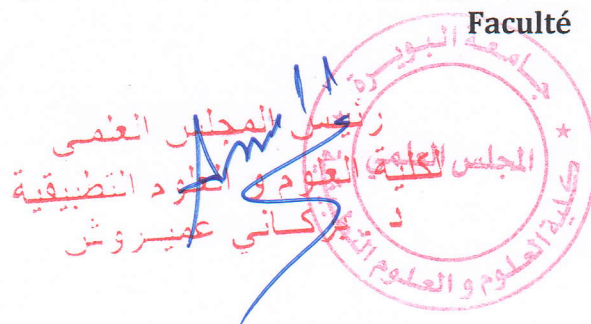 Faculté
رئيس المجلس العلمي
لكلية العلوم و العلوم التطبيقية
د بركاني عميروش
جامعة البويرة
المجلس العلمي
كلية العلوم و العلوم